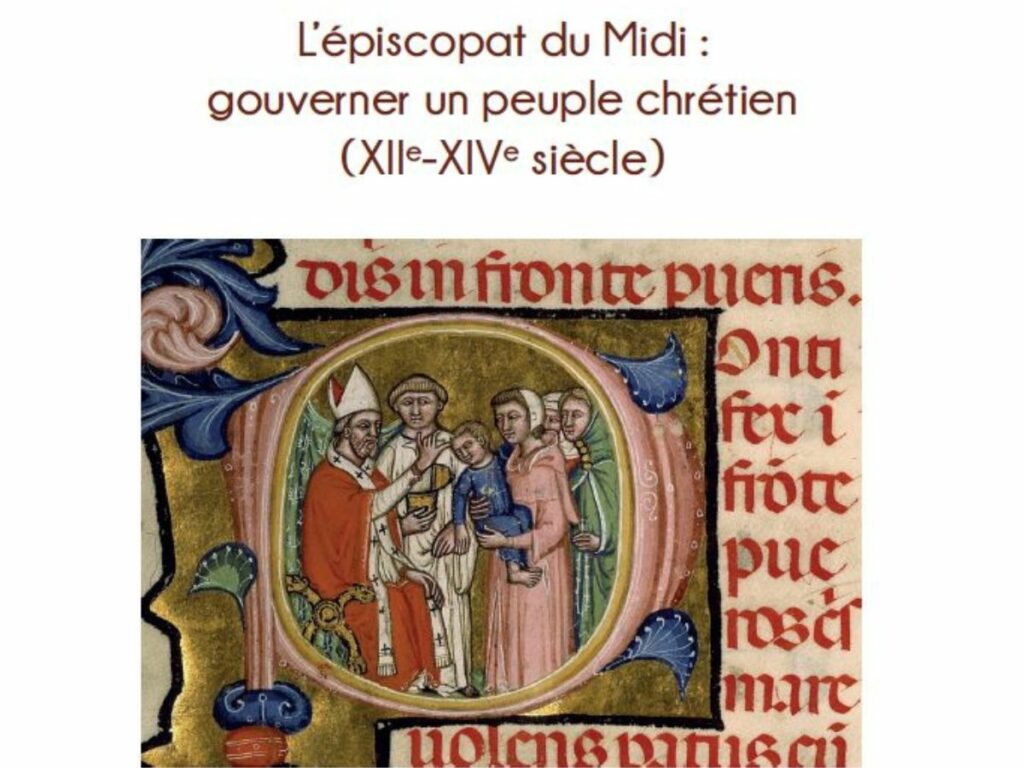 L'épiscopat du Midi :
gouverner un peuple chrétien
(XIIe-XIVe siècle)
dis in fronte pueris.
Onti
fex i
frōte
pue
ros cſ
mare
uolens